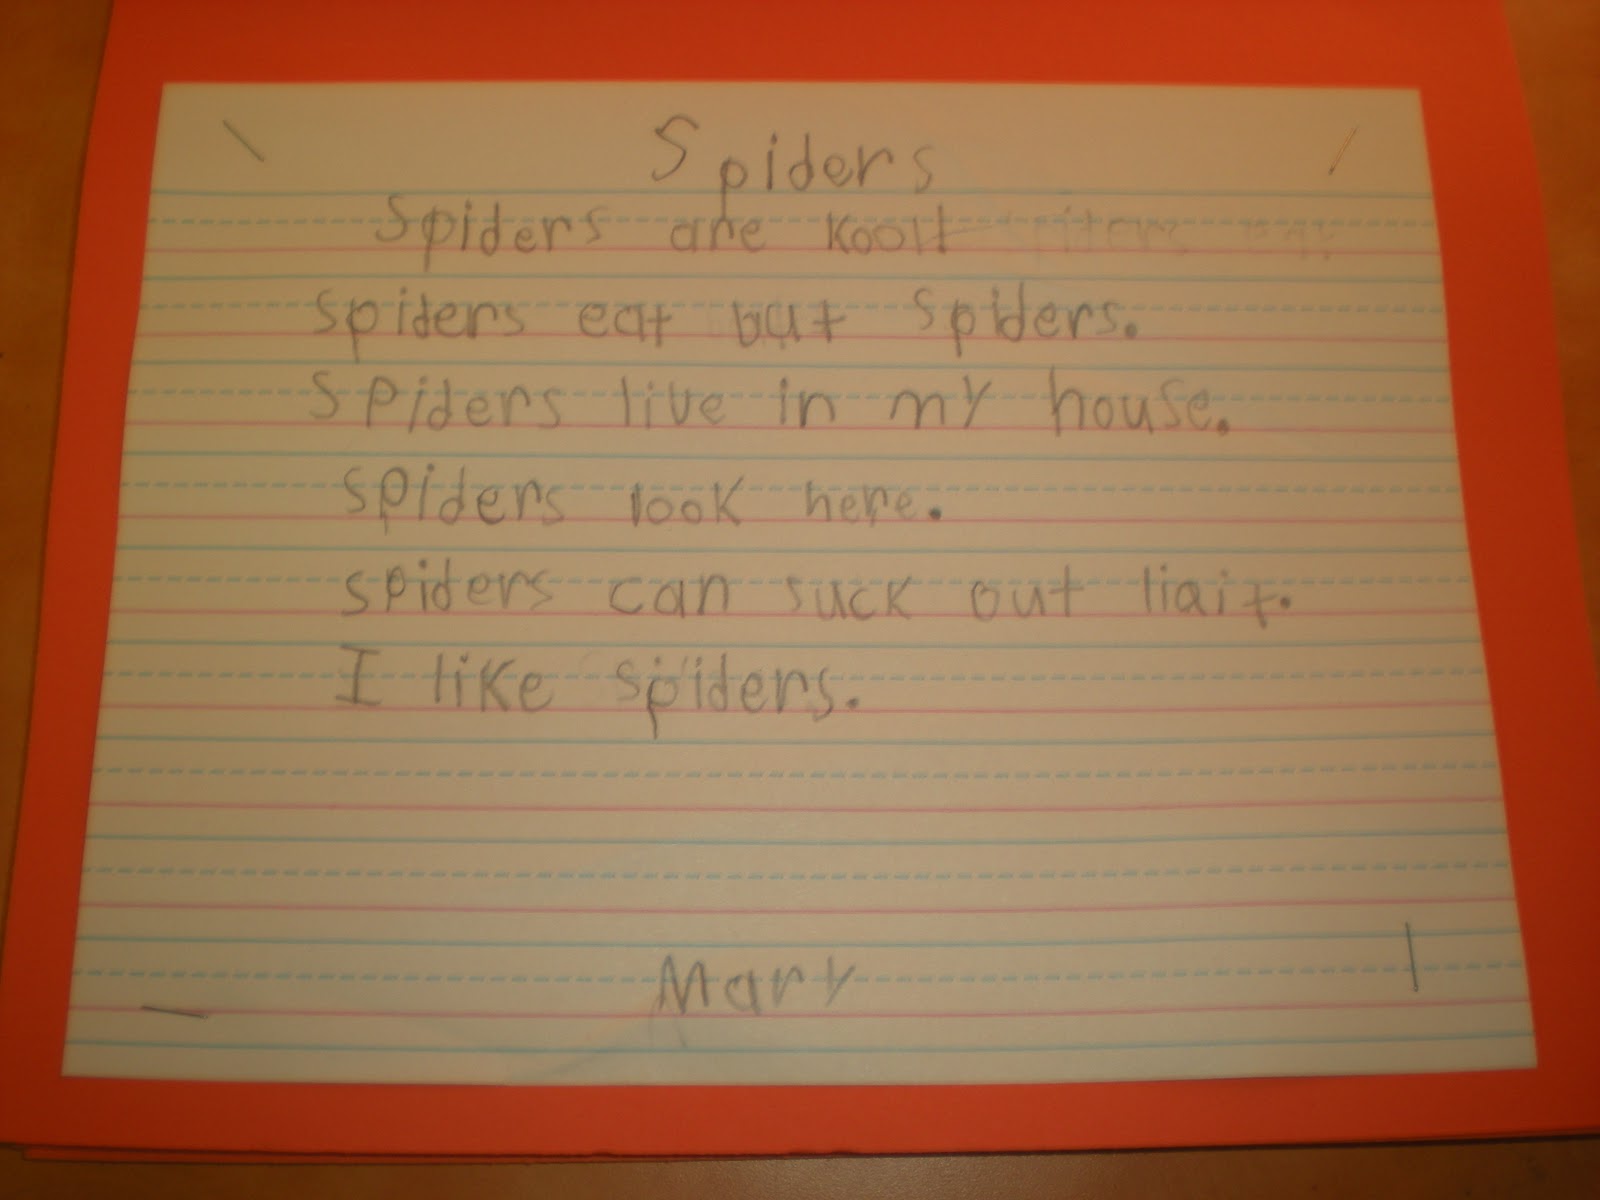 Spiders
Spiders are Kool!
spiders eat but spiders.
spiders live in my house.
spiders look here.
spiders can suck out liait.
I like spiders.
Mary